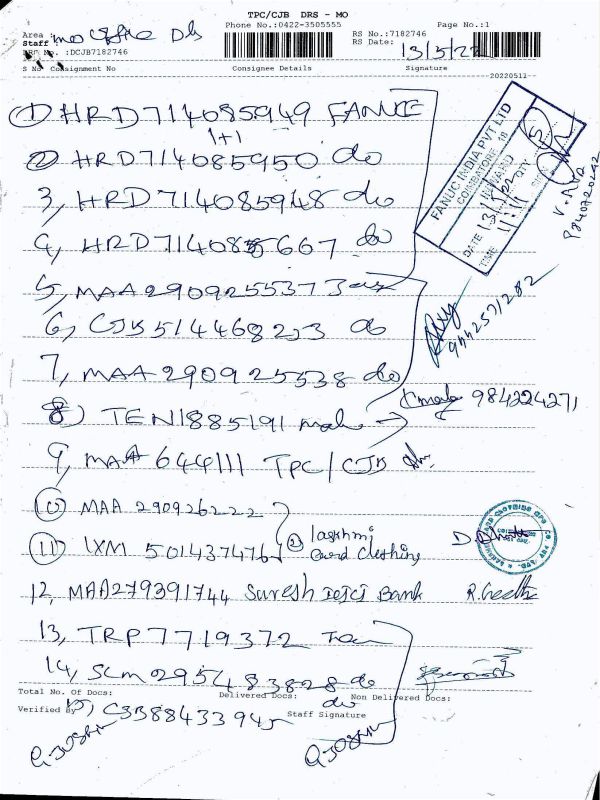 TPC/CJB DRS - MO
Phone No.:0422-3505555 Page No.:1
Area :
Staff :
DRS No. :DCJB7182746
RS No.:7182746
RS Date: 13/5/22
S No Consignment No Consignee Details Signature
20220511
1) HRD714085949 FANUC
1+1
2) HRD714085950 do
3, HRD714085948 do
4, HRD714085667 do
5, MAA2909255373
6, CJB514468253 do
7, MAA290925538 do
8) TEN1885191
9, MAA644111 TPC/CJB
FANUC INDIA PVT LTD
COIMBATORE 18
DATE 13/5/22
TIME 11:11
V. Siva
9840720292
9442571282
984224271
10) MAA 290926222
11) LXM 501437476
2) laxshmi
card clothing
12, MAA279391744 Suresh IDFC Bank R. Geetha
13, TRP7719372
14, SLM0295483828 do
Total No. Of Docs: Delivered Docs: Non Delivered Docs:
15) CSB88433945 do
Verified By Staff Signature